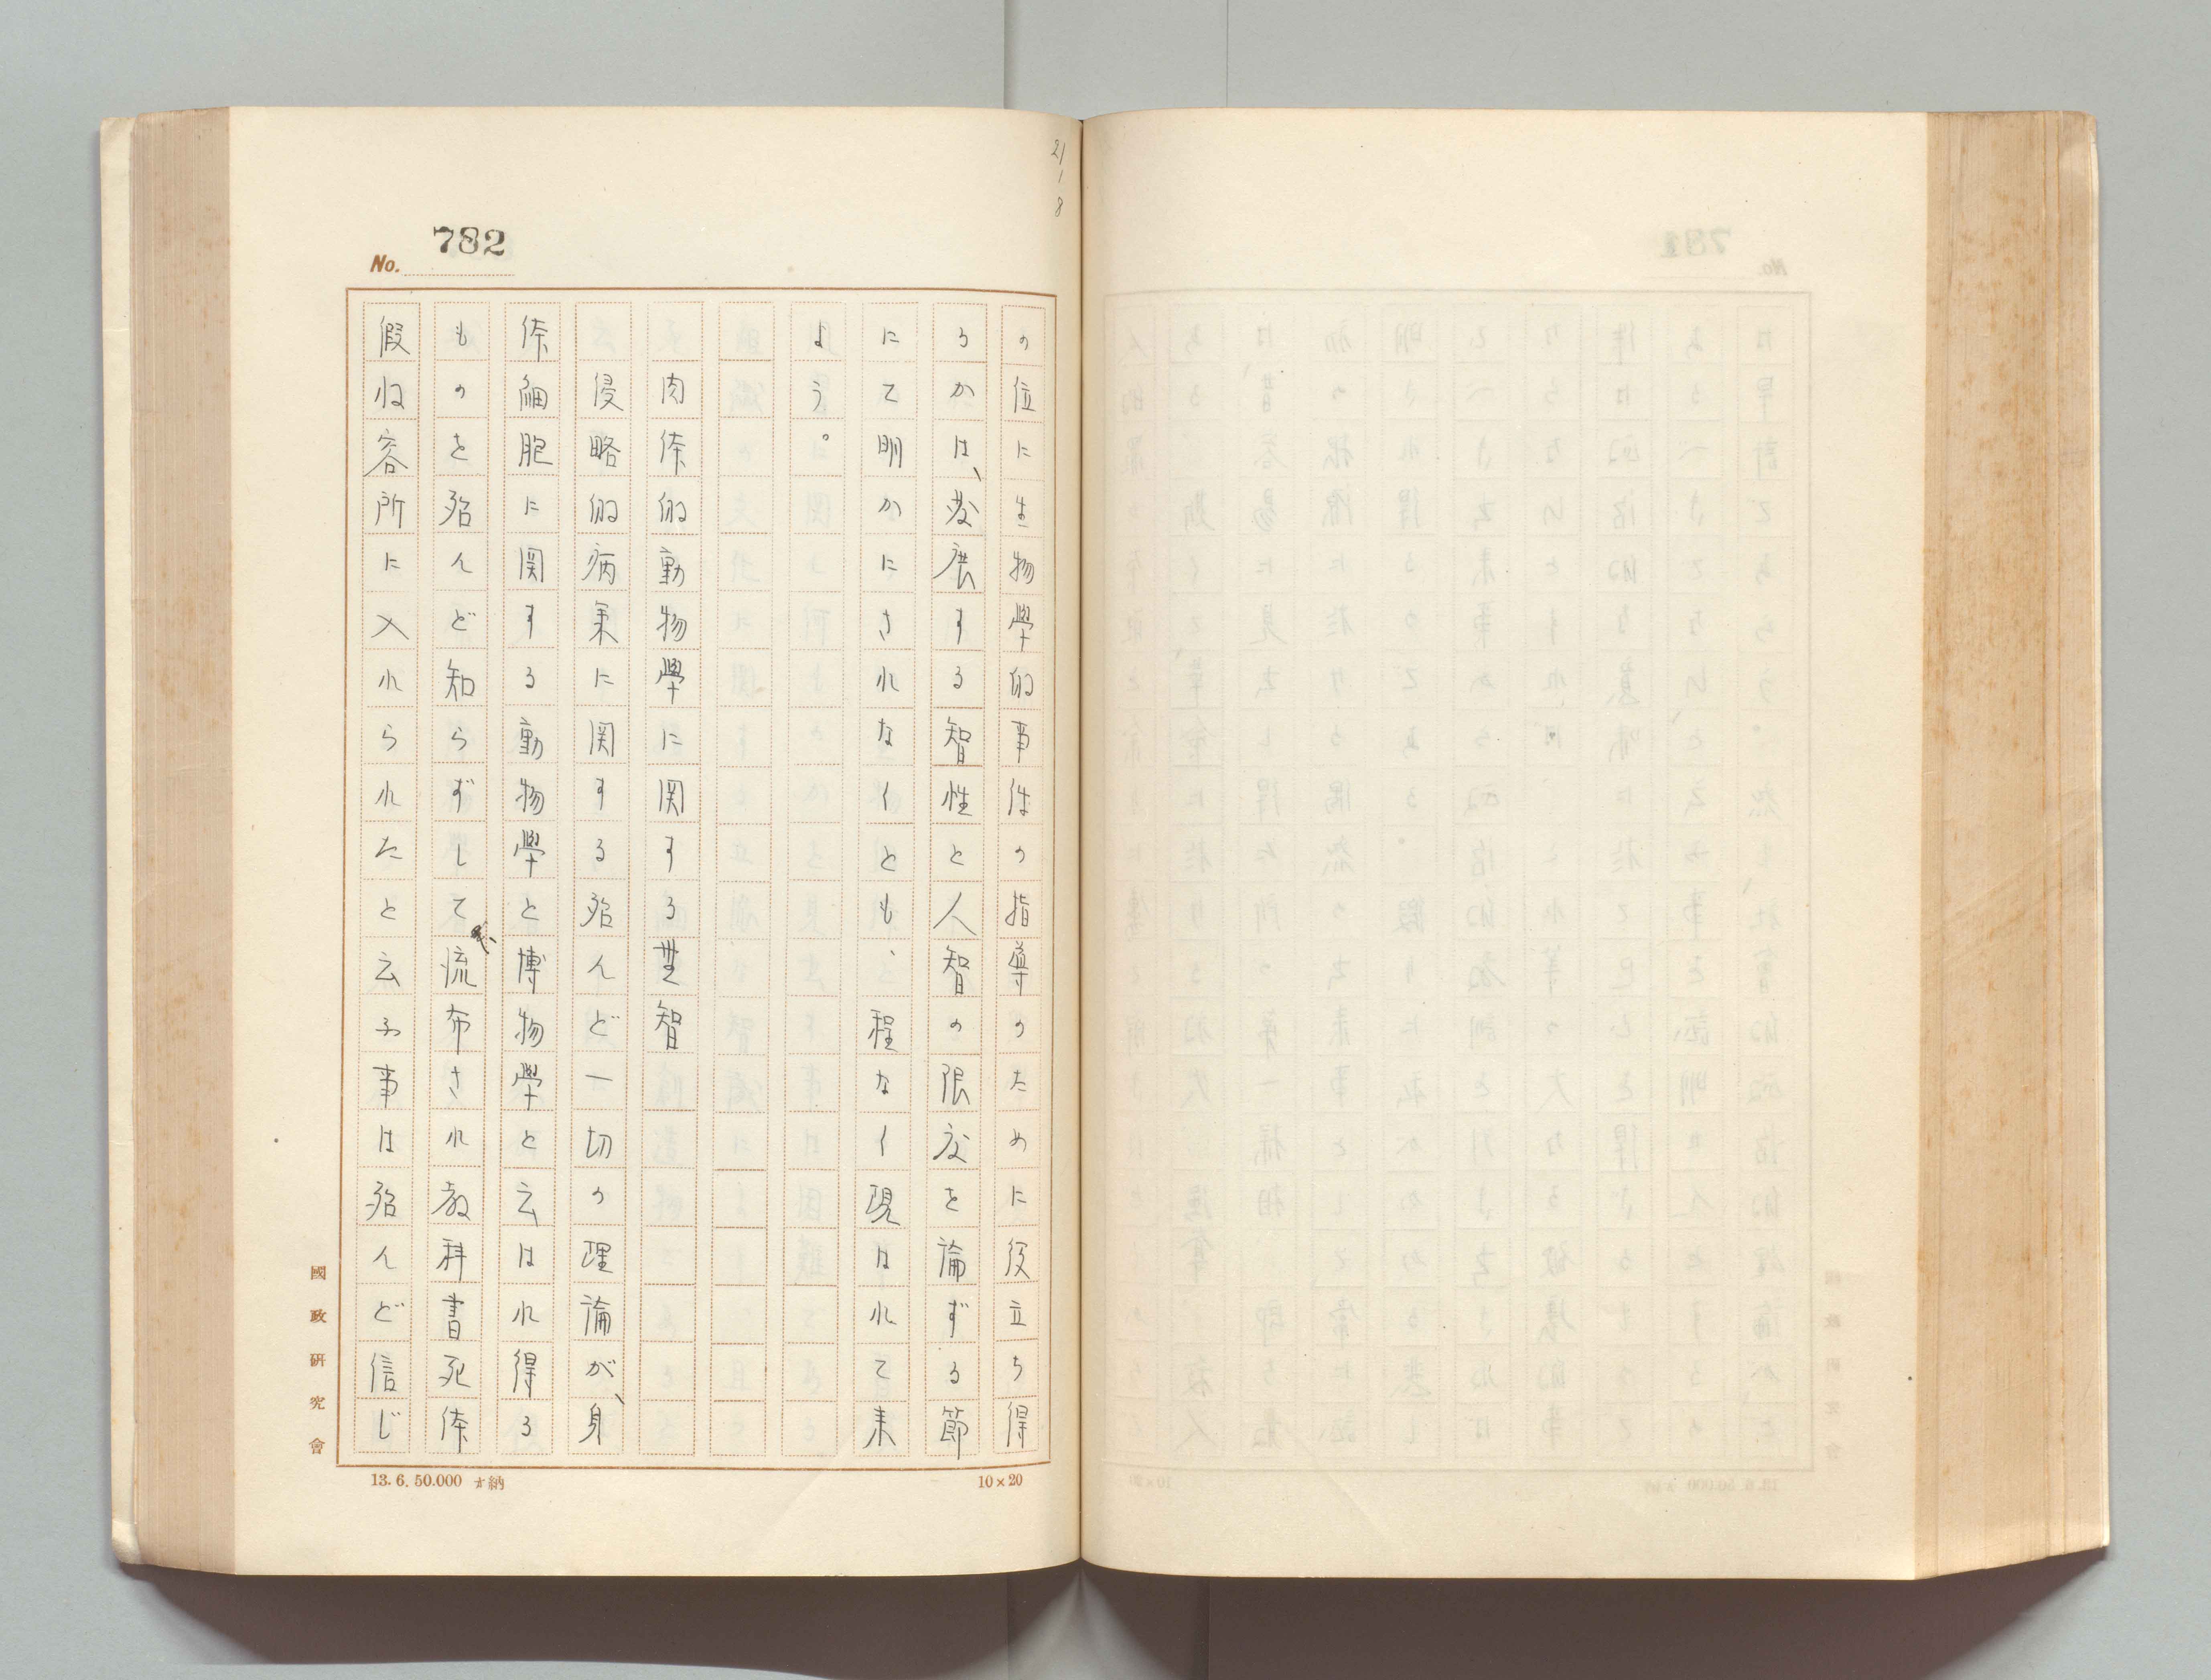 21
1
8
No. 782
の位に生物學的事件の指導のために役立ち得
るかは、發展する智性と人智の限度を論ずる節
にて明かにされなくとも、程なく現はれて来
よう。
肉体的動物學に関する無智
侵略的病気に関する殆んど一切の理論が、身
体細胞に関する動物學と博物學と云はれ得る
ものを殆んど知らずして流布され教科書死体
假收容所に入れられたと云ふ事は殆んど信じ
國政研究會
13.6.50.000 納
10×20